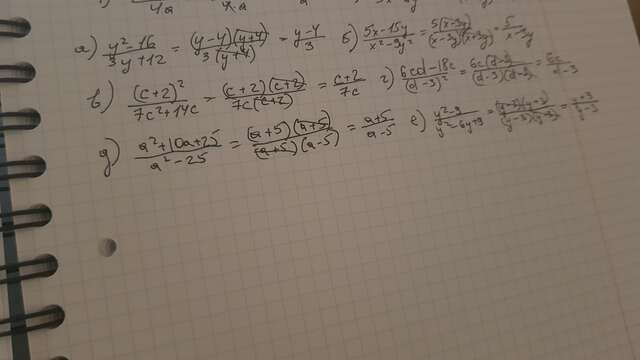 а) (y²-16)/(3y+12) = ((y-4)(y+4))/(3(y+4)) = (y-4)/3 б) (5x-15y)/(x²-9y²) = (5(x-3y))/((x-3y)(x+3y)) = 5/(x-3y)
в) (c+2)²/(7c²+14c) = ((c+2)(c+2))/(7c(c+2)) = (c+2)/7c г) (6cd-18c)/(d-3)² = (6c(d-3))/((d-3)(d-3)) = 6c/(d-3)
д) (a²+10a+25)/(a²-25) = ((a+5)(a+5))/((a+5)(a-5)) = (a+5)/(a-5) е) (y²-9)/(y²-6y+9) = ((y-3)(y+3))/((y-3)(y-3)) = (y+3)/(y-3)